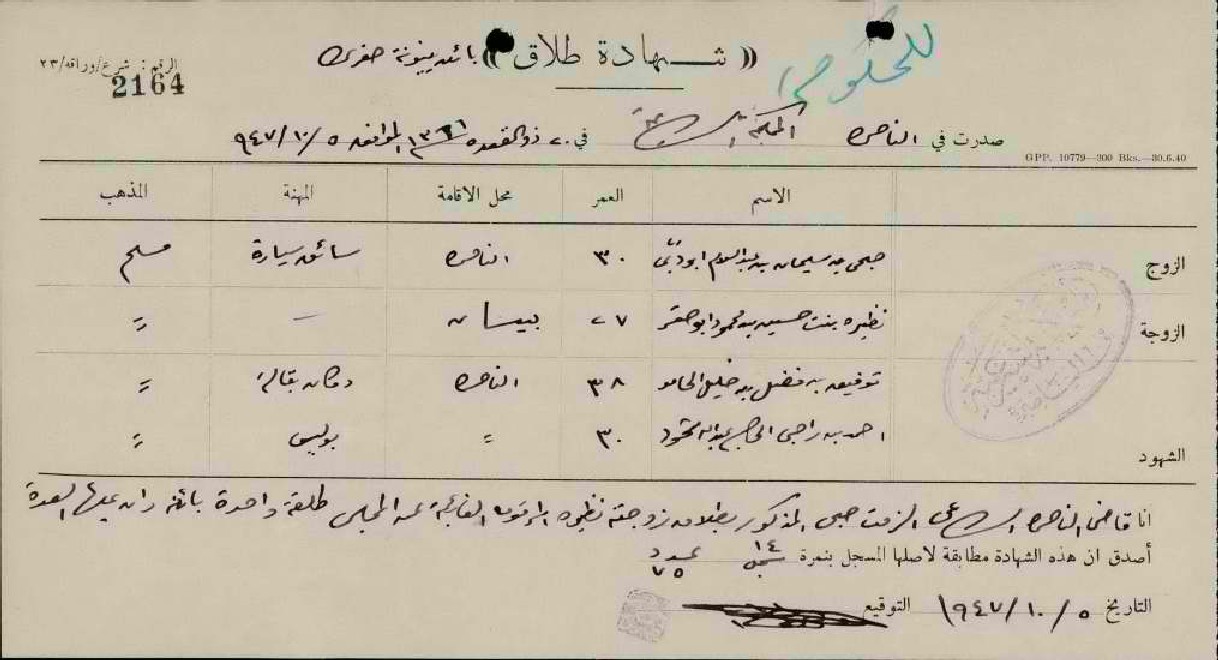 للحكومي
(( شهادة طلاق )) بائنه بينونة صغرى
الرقم : شرع/وراقه/٢٣
2164
صدرت في الناصره المحكمة الشرعية في ٢٠ ذو القعده ١٣٦٦ الموافق ٥/١٠/٩٤٧
GPP. 10779—300 Bks.—30.6.40
الاسم العمر محل الاقامة المهنة المذهب
الزوج صبحي بن سليمان بن عبد السلام ٣٠ الناصره سائق سيارة مسلم
الزوجة نظيره بنت حسين بن محمود ابو صقر ٢٧ بيسان —〃
توفيق بن فضل بن خليل الحامد ٣٨ الناصره دكان بقالة 〃
الشهود احمد بن راجي الحاج عبدالله محمود ٣٠ 〃 بوليس 〃
انا قاضي الناصره الشرعي الزمت صبحي المذكور بطلاق زوجته نظيره المرقومه الغائبة عن المجلس طلقة واحدة بائنه وان عليها العدة
أصدق ان هذه الشهادة مطابقة لاصلها المسجل بنمرة ١٤ عدد ٧٥
التاريخ ٥/١٠/١٩٤٧ التوقيع